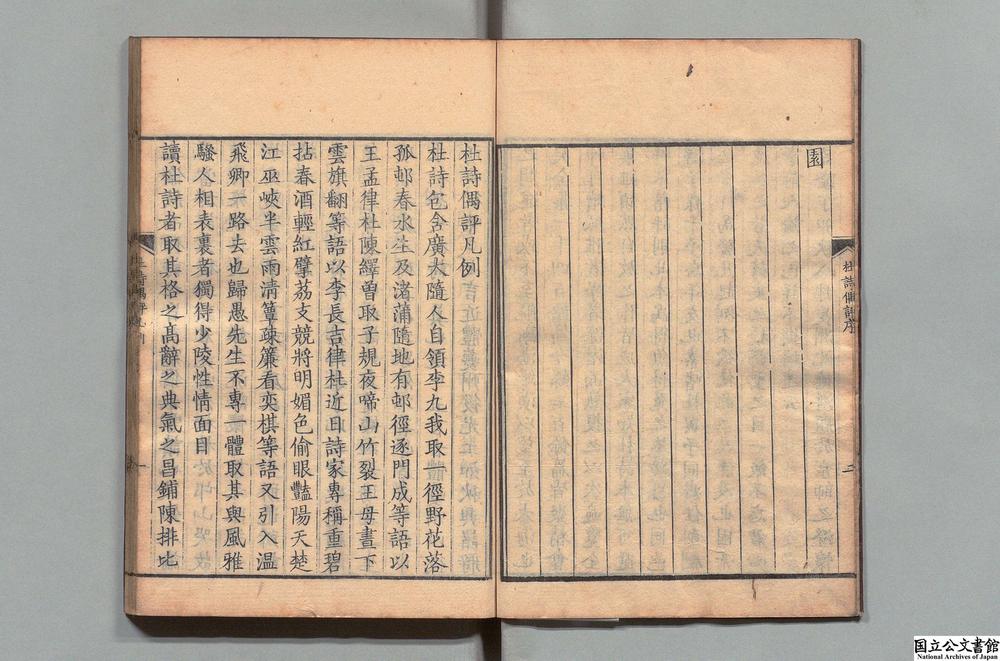 園
杜詩偶評序
二
杜詩偶評凡例
杜詩包含廣大隨人自領李九我取一徑野花落
孤邨春水生及渚蒲隨地有邨徑逐門成等語以
王孟律杜陳繹曾取子規夜啼山竹裂王母晝下
雲旗翻等語以李長吉律杜近日詩家專稱重碧
拈春酒輕紅擘荔支競將明媚色偷眼豔陽天楚
江巫峽半雲雨清簟疎簾看奕棋等語又引入温
飛卿一路去也歸愚先生不專一體取其與風雅
騷人相表裏者獨得少陵性情面目
讀杜詩者取其格之高辭之典氣之昌鋪陳排比
杜詩偶評凡例
一
国立公文書館
National Archives of Japan